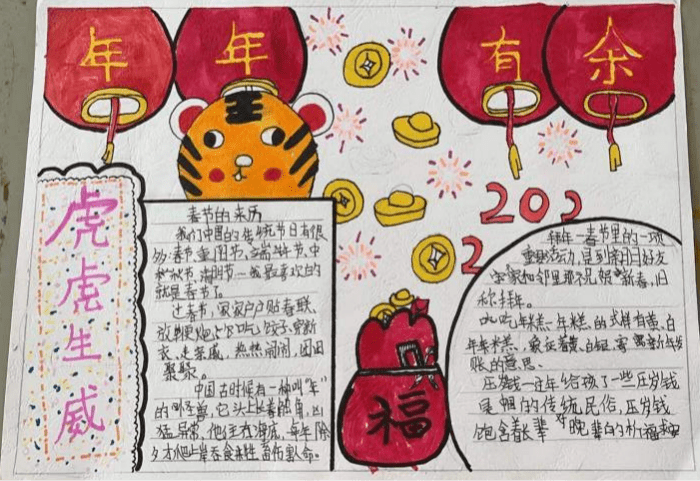 年年有余
虎虎生威
202
2
福
春节的来历
我们中国的传统节日有很
多:春节、重阳节、端午节、中
秋节、清明节…我最喜欢的
就是春节了。
过春节,家家户户贴春联、
放鞭炮、吃饺子、穿新
衣、走亲戚,热热闹闹,团团
聚聚。
中国古时候有一种叫"年"
的怪兽,它头上长着角,凶
猛异常,他住在海底,每年除
夕才爬上岸吞食牲畜伤人命。
拜年一春节里的一项
重要活动,是到亲朋好友
家和邻里那祝贺新春,旧
称拜年。
吃年糕、年糕的式样有黄、白
年糕,象征着黄、白银,寓
的意思。
压岁钱一过年给孩子一些压岁钱
是的传统民俗,压岁钱
饱含着长辈对晚辈的祈福